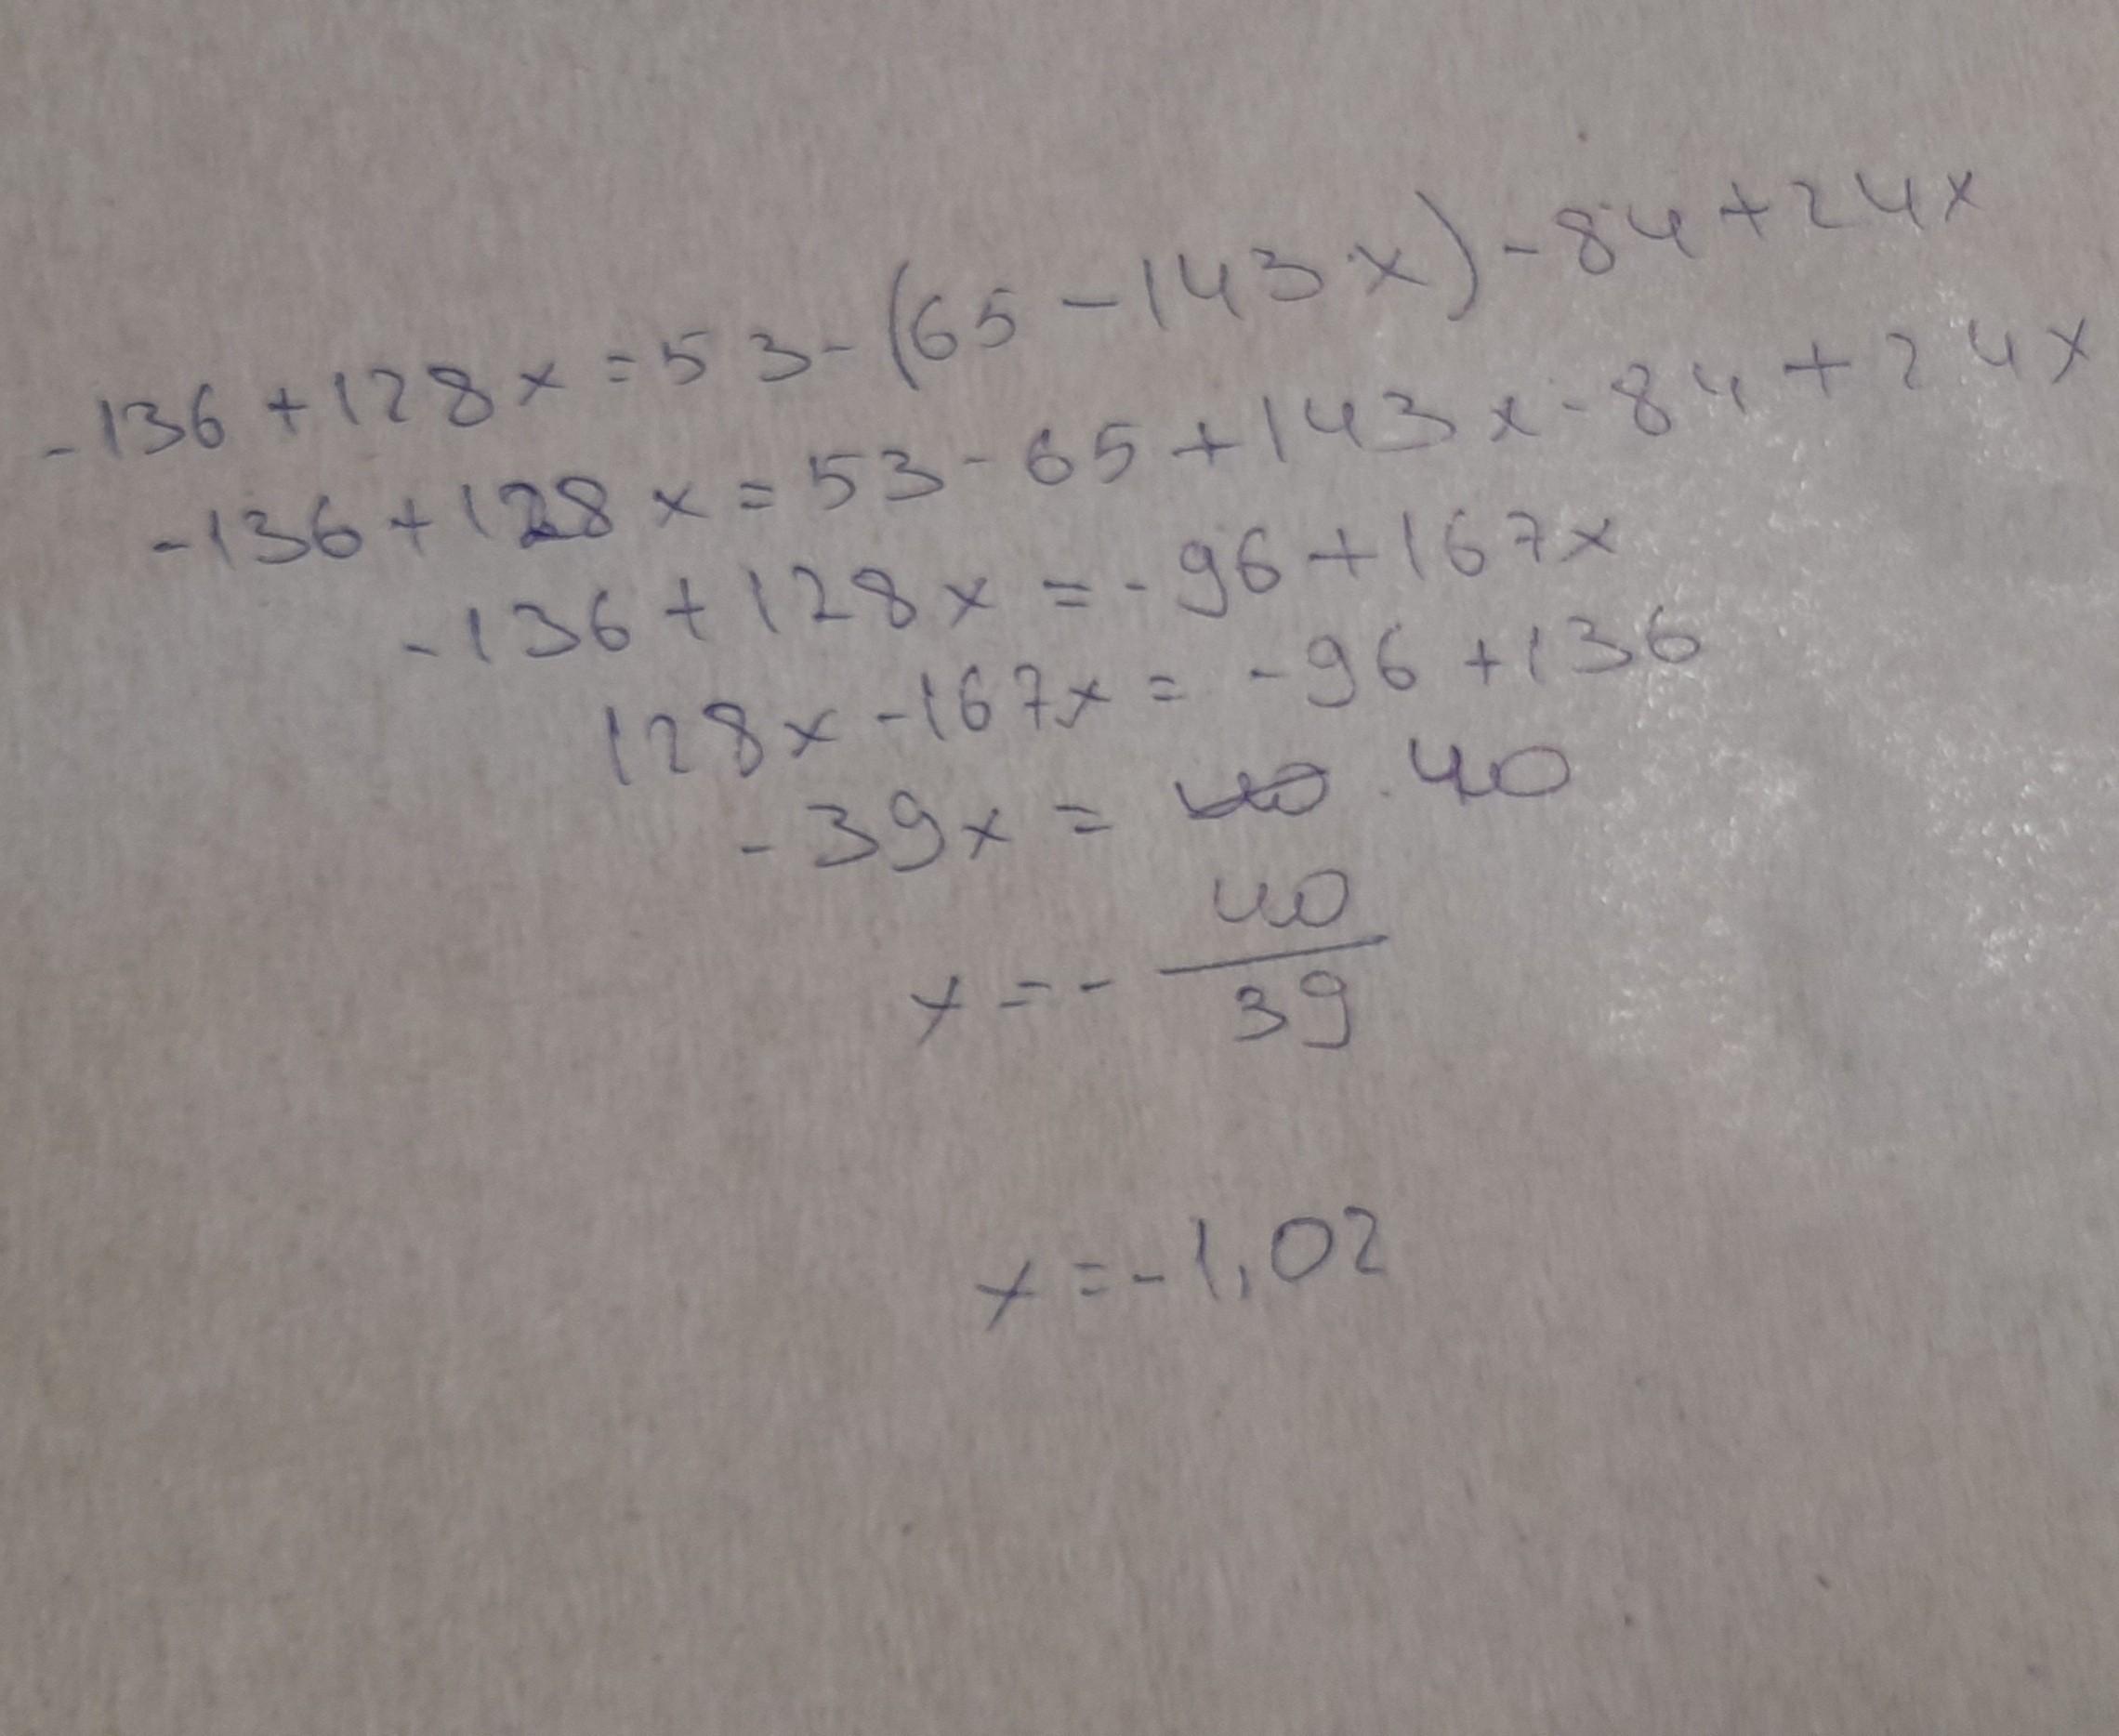 -136+128x=53-(65-143x)-84+24x
-136+128x=53-65+143x-84+24x
-136+128x=-96+167x
128x-167x=-96+136
-39x=40
x=-40/39
x=-1,02